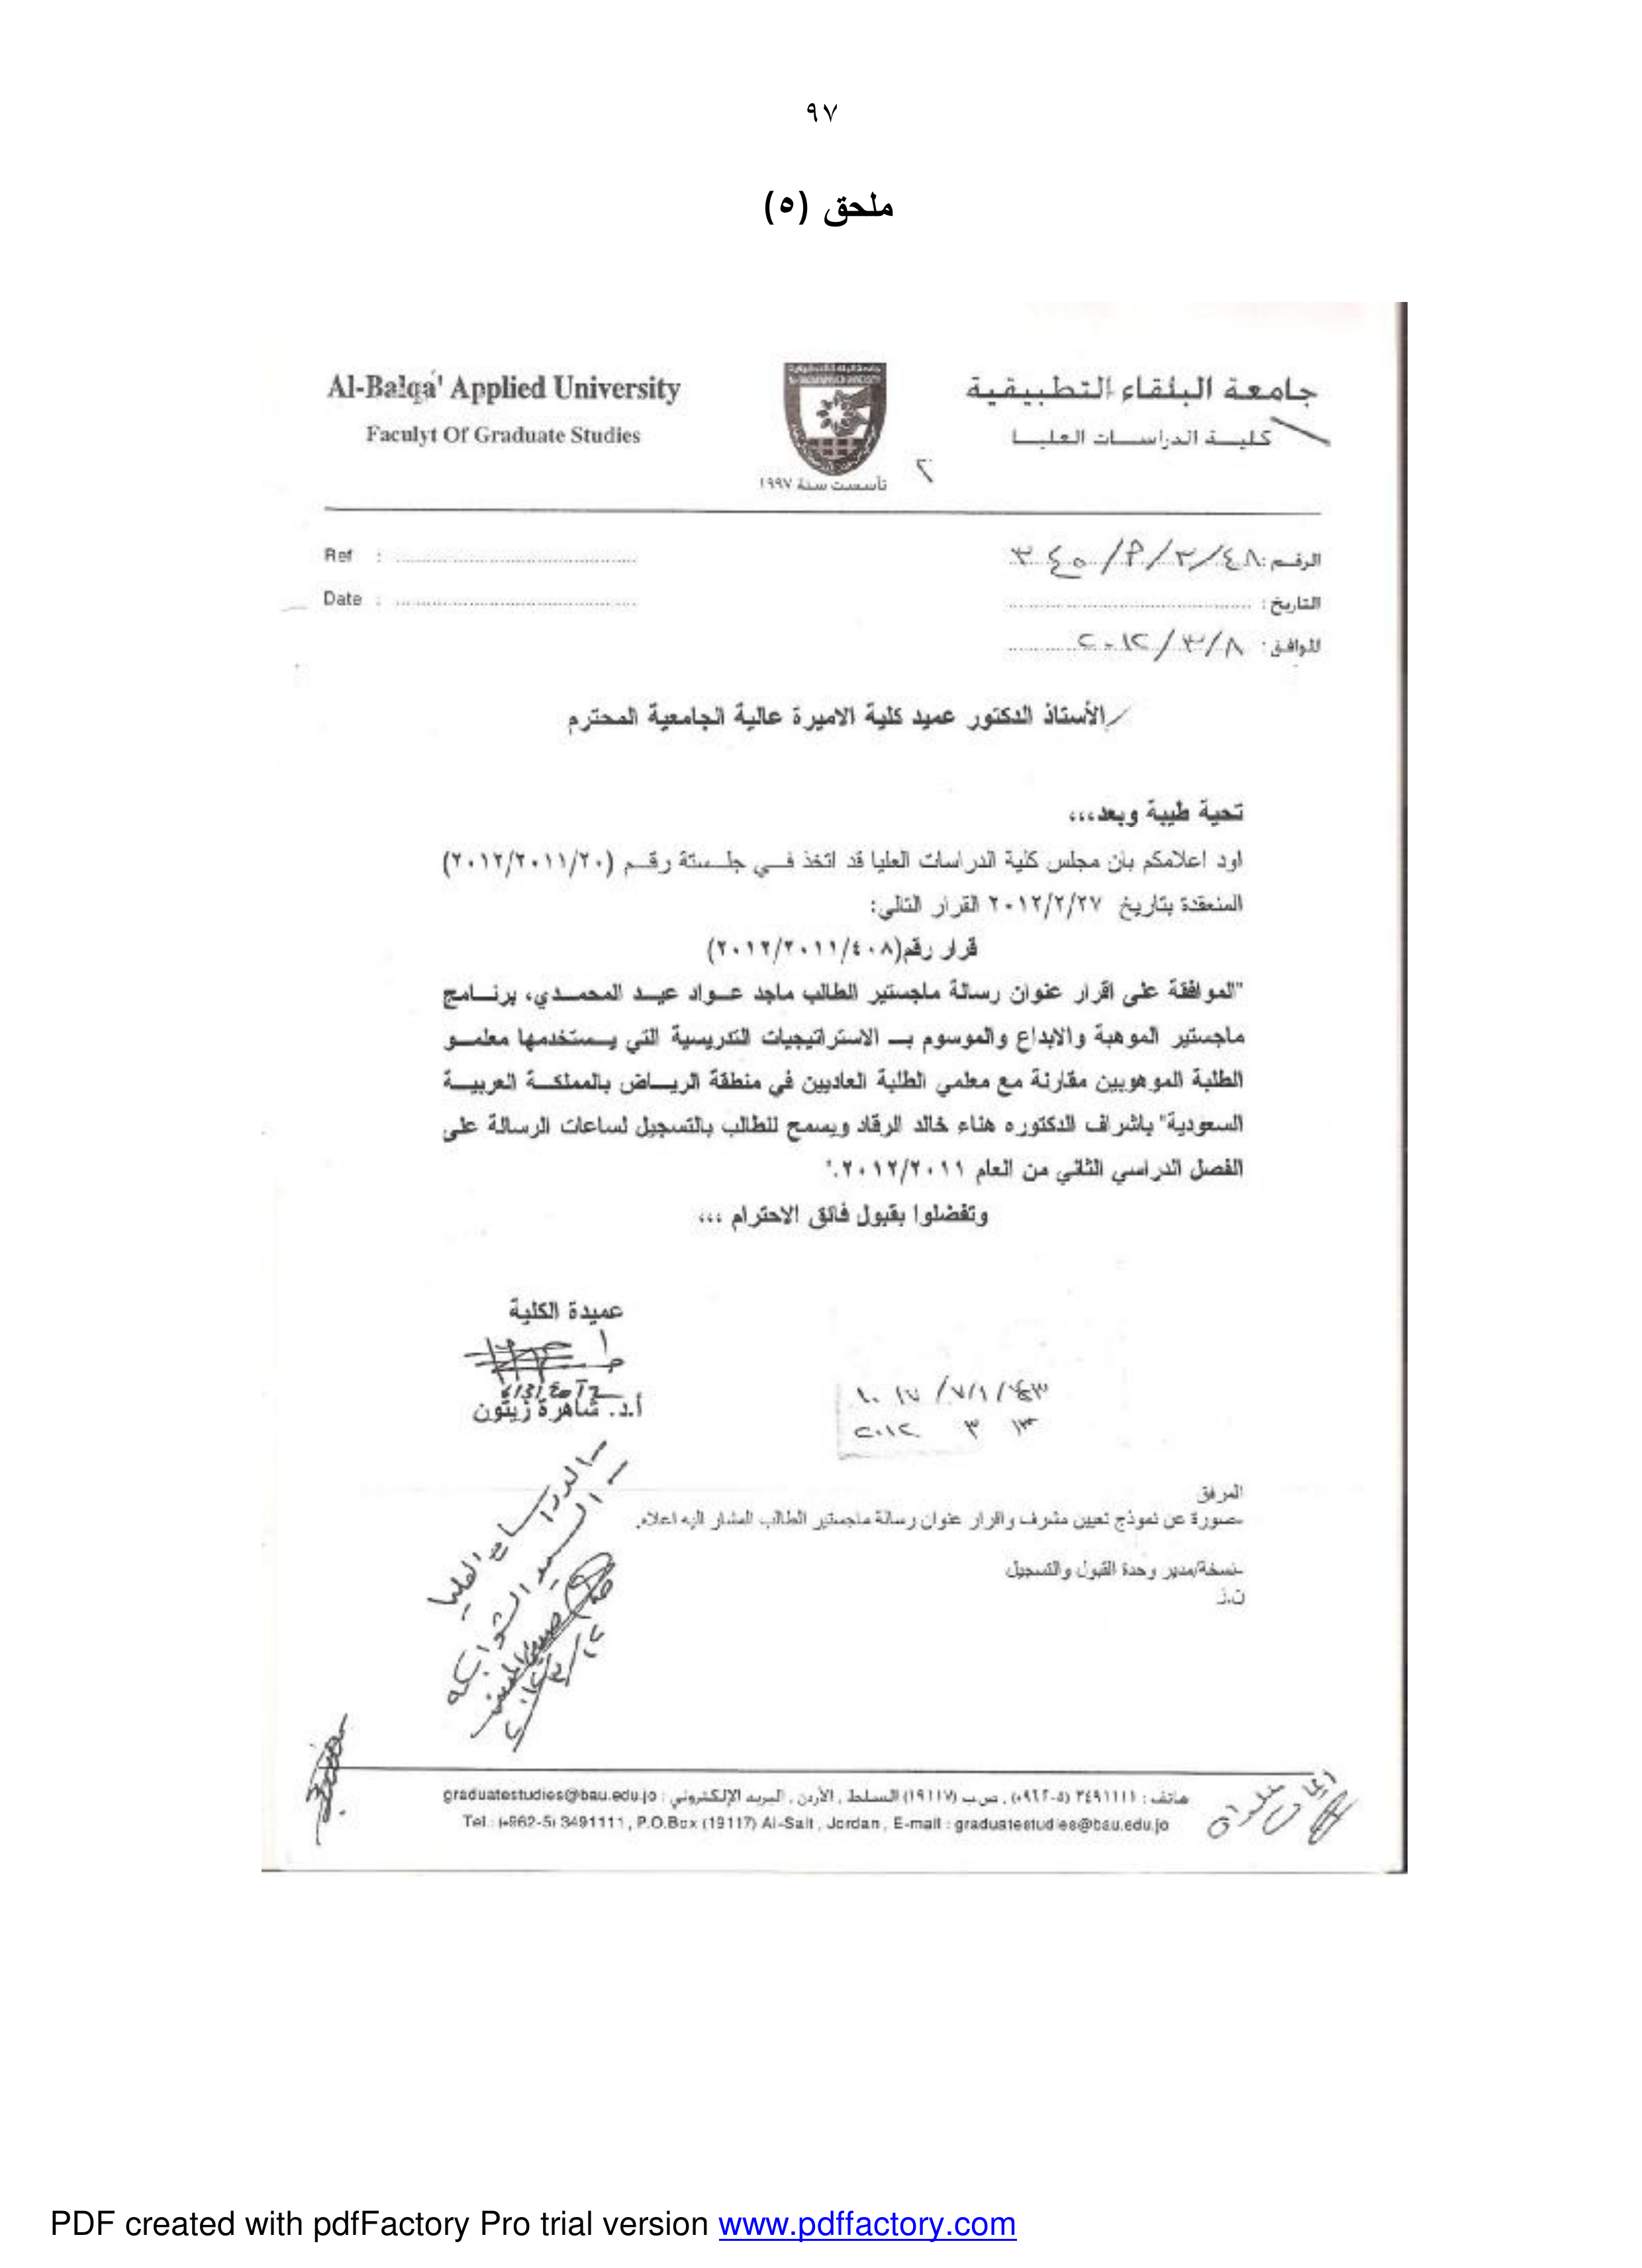 ٩٧
ملحق (٥)
Al-Balqa' Applied University
جامعة البلقاء التطبيقية
Faculyt Of Graduate Studies
كليـة الدراسـات العليـا
تأسست سنة ١٩٩٧
Ref :
الرقم: ٤٨/٣/٢/٣٤٥
Date :
التاريخ :
الموافق: ٢٠١٢/٣/٨
الأستاذ الدكتور عميد كلية الاميرة عالية الجامعية المحترم
تحية طيبة وبعد،،،
اود اعلامكم بان مجلس كلية الدراسات العليا قد اتخذ فـي جلـستة رقـم (٢٠١٢/٢٠١١/٢٠)
المنعقدة بتاريخ ٢٠١٢/٢/٢٧ القرار التالي:
قرار رقم(٢٠١٢/٢٠١١/٤٠٨)
"الموافقة على اقرار عنوان رسالة ماجستير الطالب ماجد عـواد عيـد المحمـدي، برنـامج
ماجستير الموهبة والابداع والموسوم بـ الاستراتيجيات التدريسية التي يـستخدمها معلمـو
الطلبة الموهوبين مقارنة مع معلمي الطلبة العاديين في منطقة الريـاض بالمملكـة العربيـة
السعودية" باشراف الدكتوره هناء خالد الرقاد ويسمح للطالب بالتسجيل لساعات الرسالة على
الفصل الدراسي الثاني من العام ٢٠١٢/٢٠١١."
وتفضلوا بقبول فائق الاحترام ،،،
عميدة الكلية
أ.د. شاهرة زيتون
٢٠١٢ ٣ ١٣
المرفق
-صورة عن نموذج تعيين مشرف واقرار عنوان رسالة ماجستير الطالب المشار اليه اعلاه.
-نسخة/مدير وحدة القبول والتسجيل
ن.ز
الدراسات العليا
هاتف : ٣٤٩١١١١ (٥-٩٦٢+) ، ص.ب (١٩١١٧) السلط ، الأردن ، البريد الإلكتروني : graduatestudies@bau.edu.jo
Tel.: (+962-5) 3491111 , P.O.Box (19117) Al-Salt , Jordan , E-mail : graduatestudies@bau.edu.jo
PDF created with pdfFactory Pro trial version www.pdffactory.com